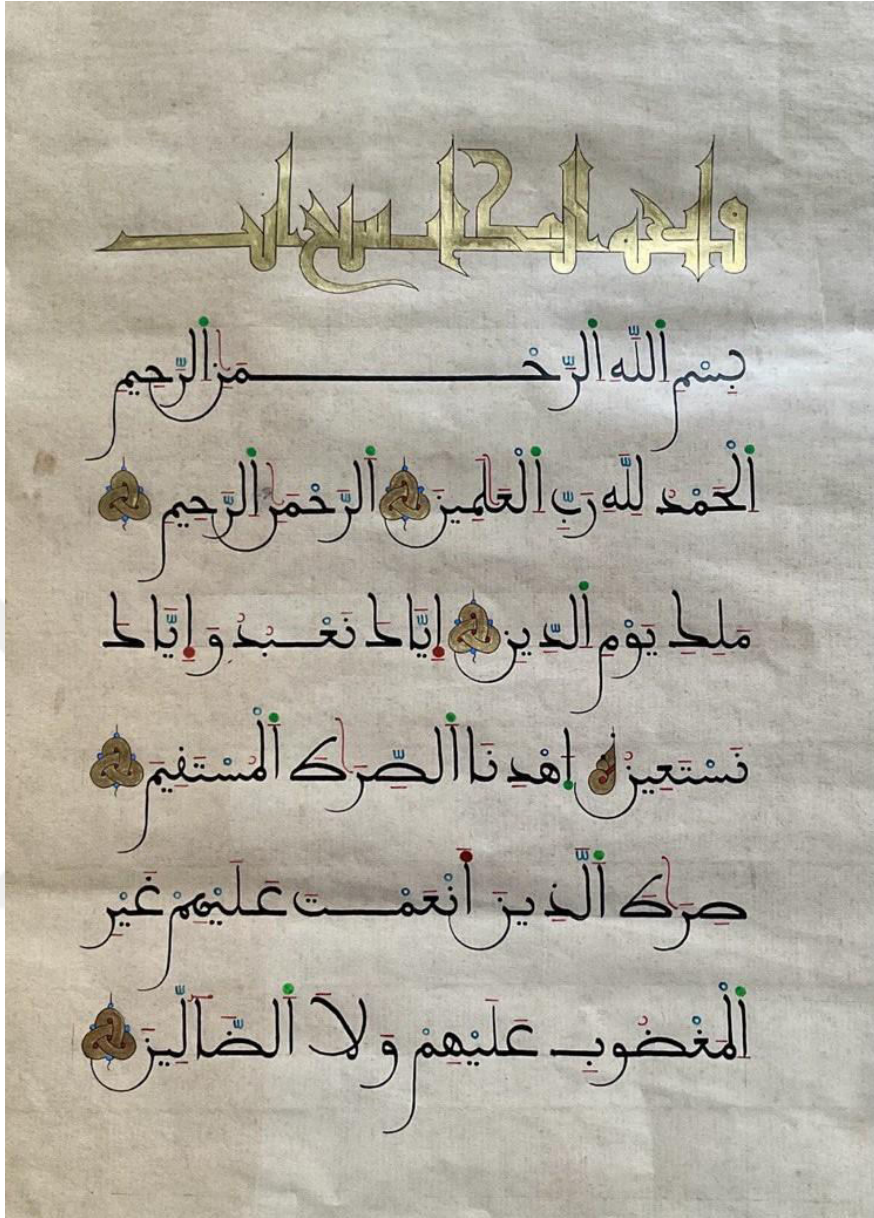 فاتحة الكتاب سبع ايات
بِسْمِ اَللَّهِ اَلرَّحْمَٰنِ اَلرَّحِيمِ
اَلْحَمْدُ لِلَّهِ رَبِّ اَلْعَٰلَمِينَ اَلرَّحْمَٰنِ اَلرَّحِيمِ
مَلِكِ يَوْمِ اِلدِّينِ إِيَّاكَ نَعْبُدُ وَإِيَّاكَ
نَسْتَعِينُ اِهْدِنَا اَلصِّرَٰطَ اَلْمُسْتَقِيمَ
صِرَٰطَ اَلَّذِينَ أَنْعَمْتَ عَلَيْهِمْ غَيْرِ
اِلْمَغْضُوبِ عَلَيْهِمْ وَلَا اَلضَّآلِّينَ